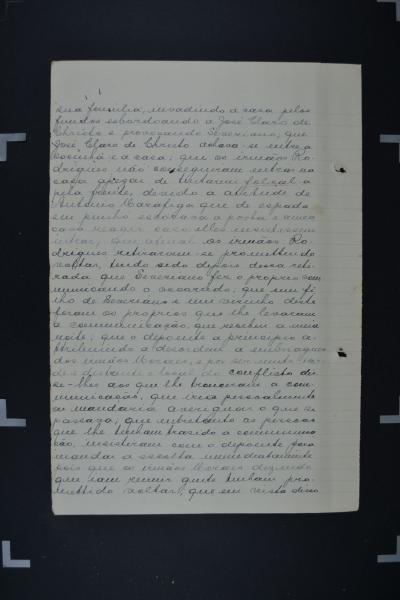 sua familia, invadindo a casa pelos
fundos esbordoando a José Claro de
Christo e provocando Severiano; que
José Claro de Christo achava-se entre a
cosinha e a casa; que os irmãos Ro-
drigues não conseguiram entrar na
casa apezar de tentarem fazel-o
pela frente, devido a attitude de
Antonio Marafiga que de espada
em punho estava a porta e amea-
cava reagir caso elles insistissem
entrar; que afinal os irmãos Ro-
drigues retiraram-se promettendo
voltar, tendo sido depois dessa reti-
rada que Severiano fez o proprio com-
municando o occorrido; que um fi-
lho de Severiano e um visinho deste
foram os proprios que lhe levaram
a communicação, que recebeu a meia
noite; que o depoente a principio at-
tribuindo a desordem a embriaguez
dos irmãos Moraes, e por ser muito tar-
de e distante o local do conflicto dis-
se-lhes aos que lhe trouxeram a com-
municação, que iria pessoalmente
ou mandaria averiguar o que se
passava, que entretanto as pessoas
que lhe tinham trazido a communica-
ção, insistiram com o depoente para
mandar a escolta immediatamente
pois que os irmãos Moraes dizendo
que iam reunir gente tinham pro-
mettido voltar; que em vista disso